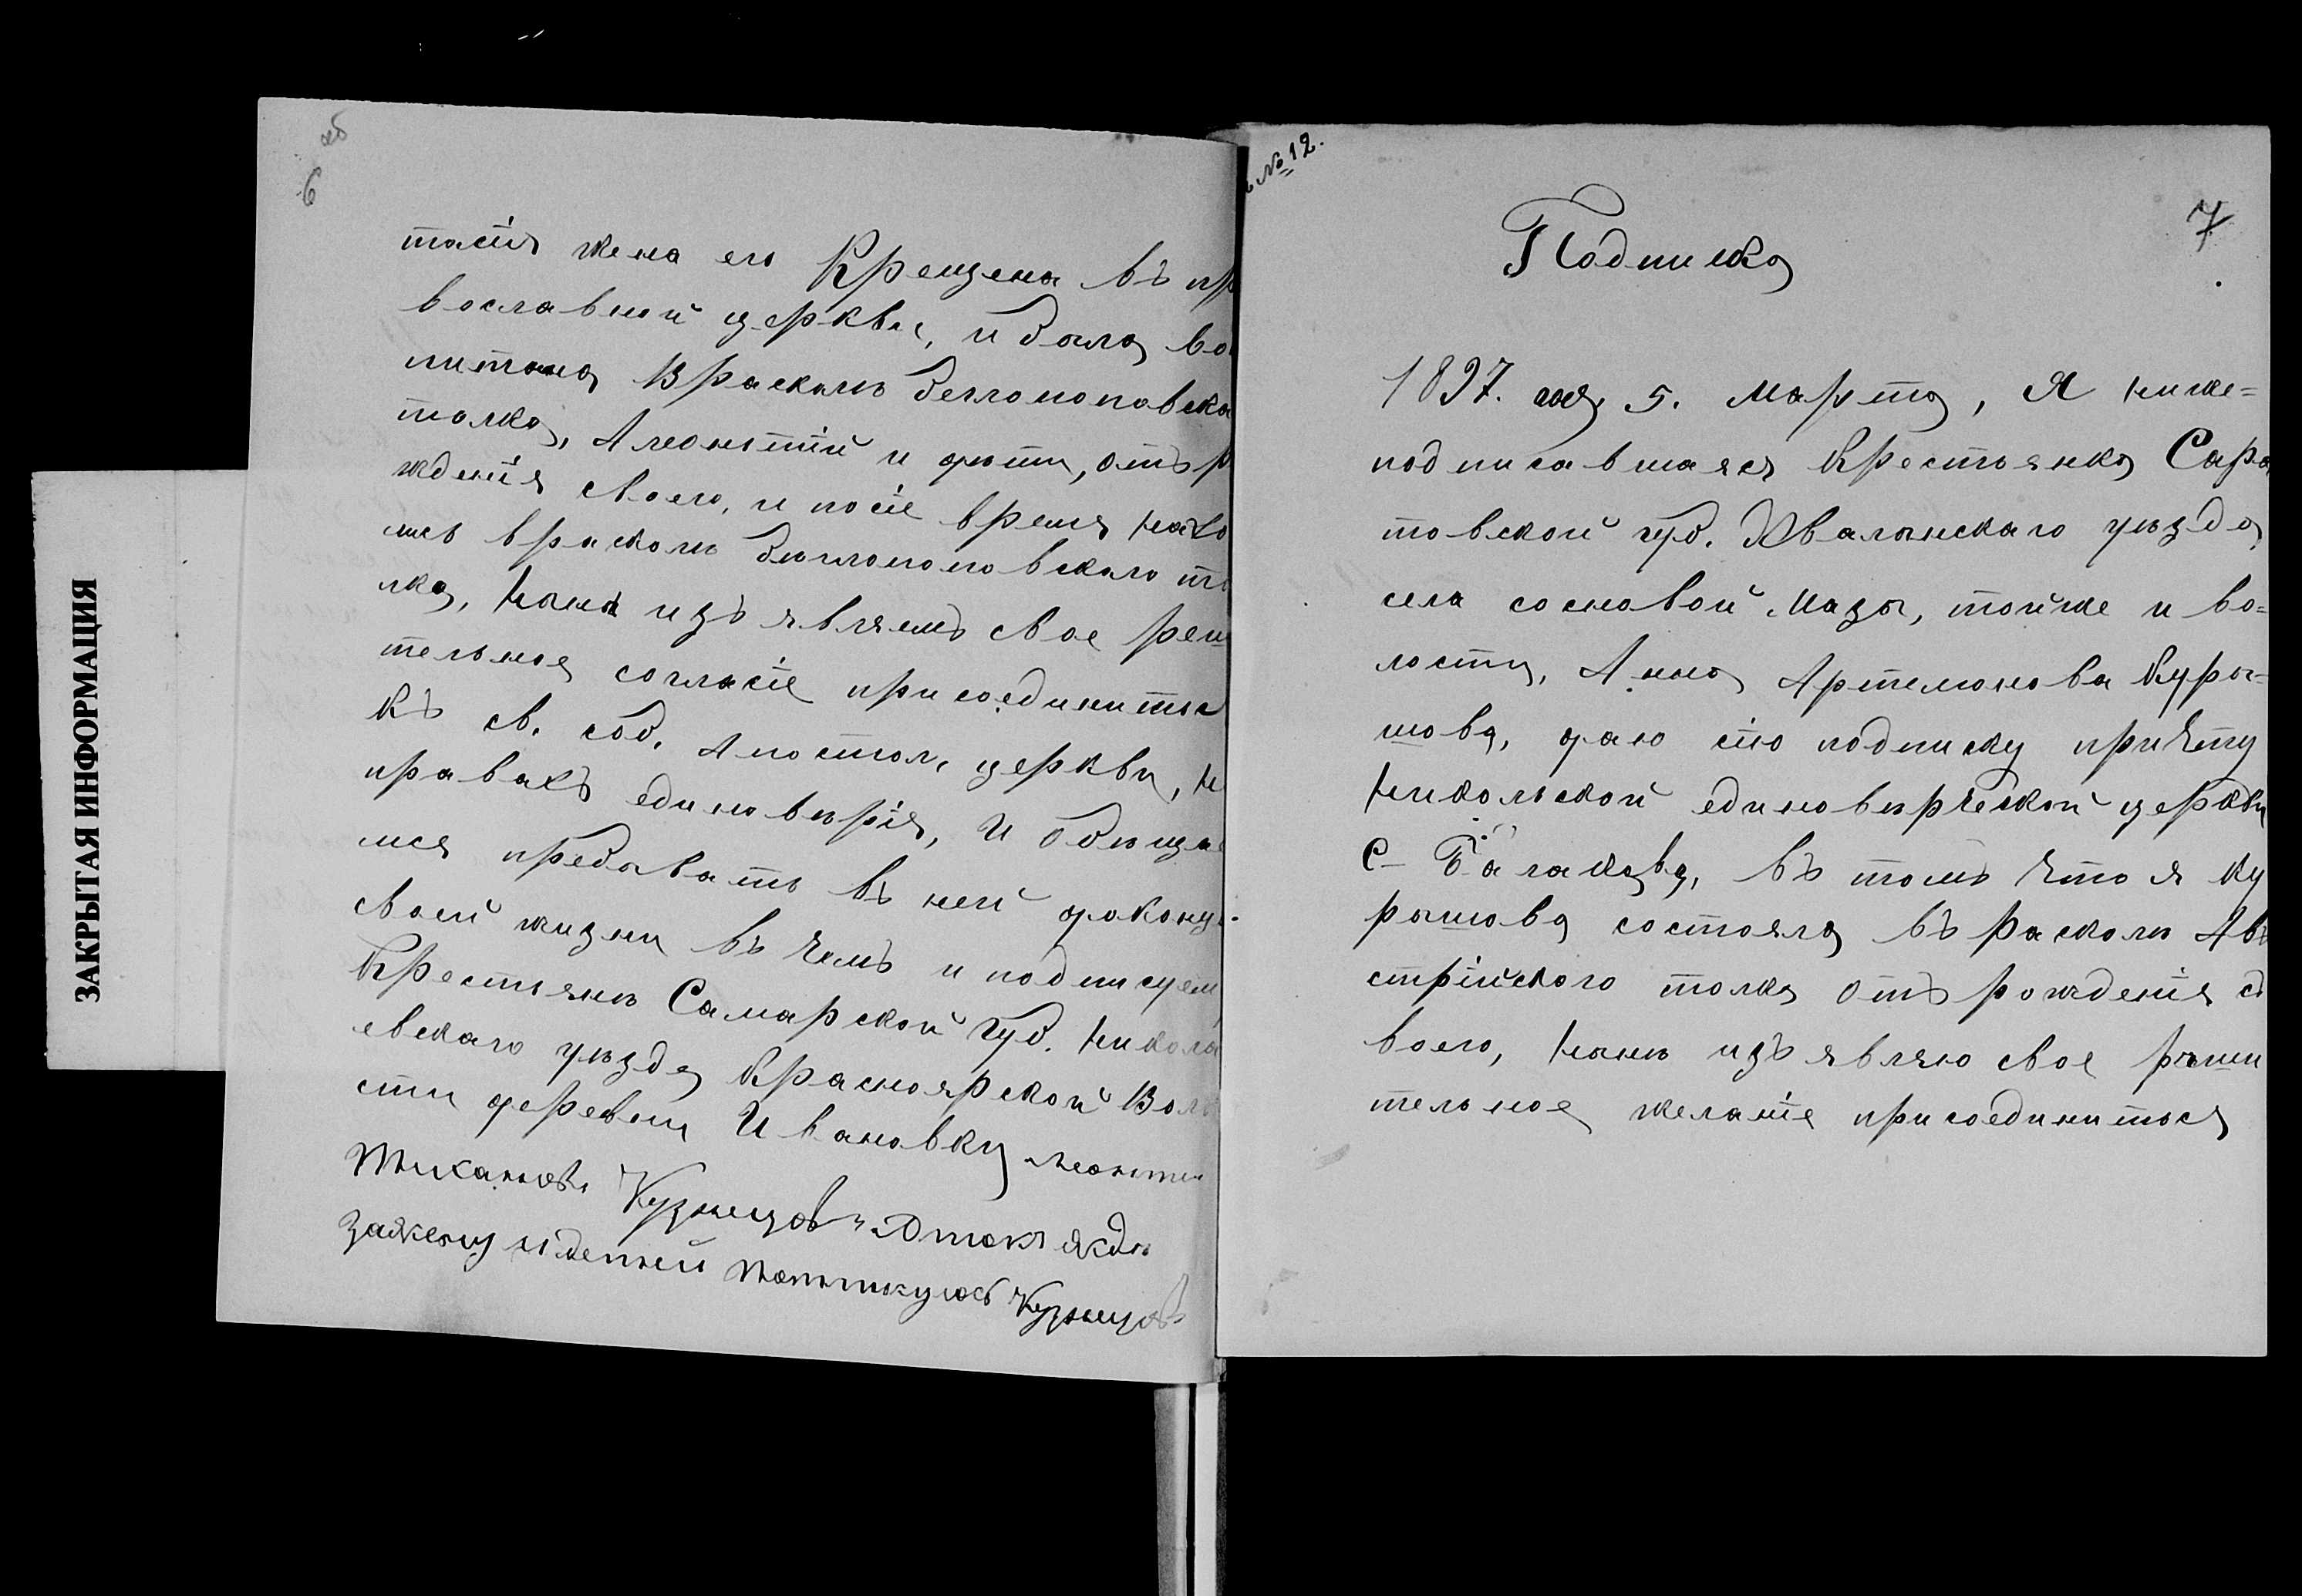 ЗАКРЫТАЯ ИНФОРМАЦИЯ
6 об
тасія жена его Крещена въ пр
вославной церкви, и была во
питана Враскол​ѣ беглопоповска
толка, А леонтій и дѣти, отъ р
жденія своего, и посіе время нахо
лись врасколѣ бѣглопоповскаго то
лка, Нынѣ изъявляемъ свое реш
тельное согласіе присоединиться
къ св. соб. Апостол. церкви, н
правахъ единовѣрія, и обѣща
мся пребывать въ ней доконца
своей жизни въ чемъ и подписуем
Крестьяне Самарской Губ. Никола
евскаго уѣзда Красноярской Воло
сти деревни Ивановки Леонти
Кузнецов
зажену идетей Кузнецовъ
№ 12.
7
Подписка
1897. года 5. Марта, Я ниже=
подписавшаяся Крестьянка Сара
товской губ. Хвалынскаго уѣзда,
села сосновой Мазы, тойже и во=
лости, Анна Артемонова Куры=
шова, даю сію подписку причту
Никольской единовѣрческой церкви
с- Балакова, въ томъ что я Ку
рышова состояла въ расколѣ Ав
стрійскаго толка отъ рожденія с
воего, нынѣ изъявляю свое рѣши
тельное желаніе присоединиться